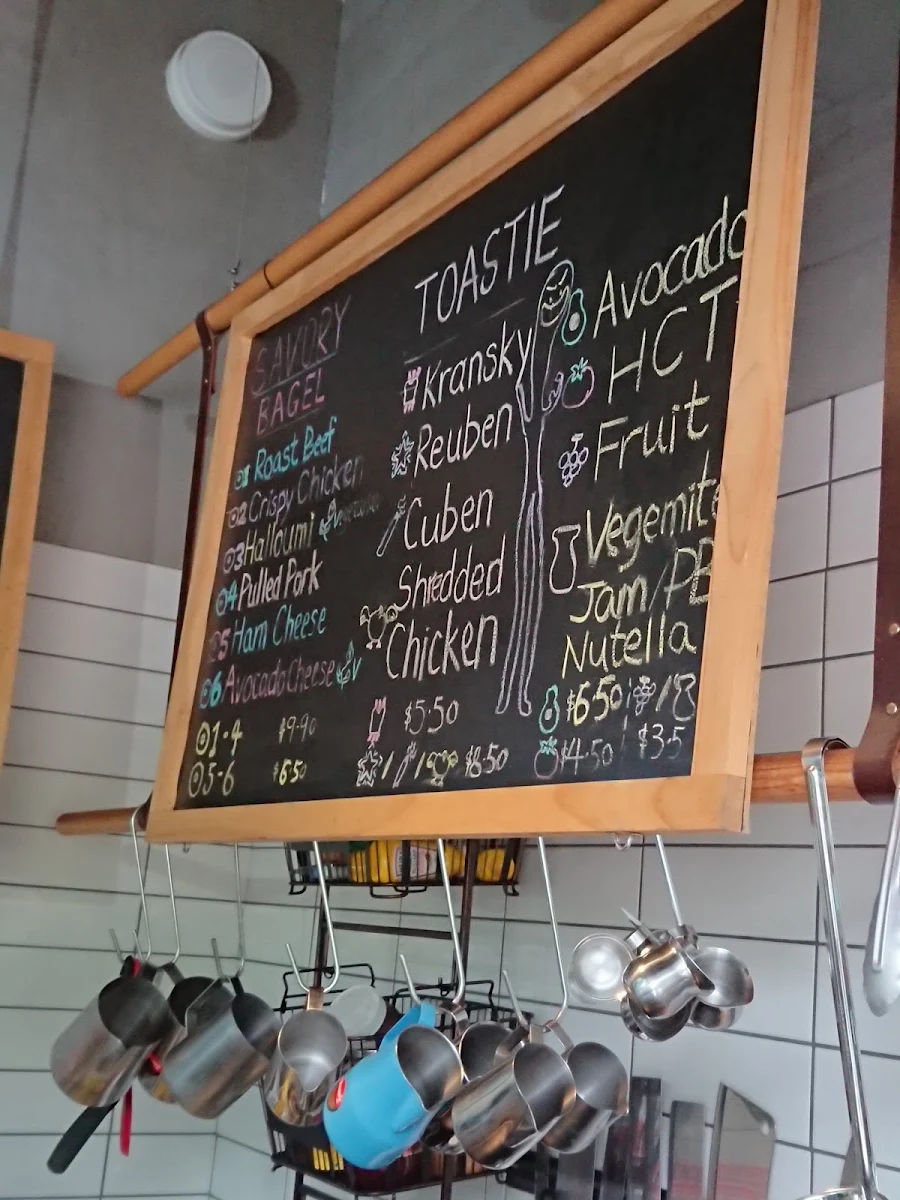 SAVORY
BAGEL
1 Roast Beef
2 Crispy Chicken
3 Halloumi
4 Pulled Pork
5 Ham Cheese
6 Avocado Cheese V
1-4 $9.90
5-6 $6.50
TOASTIE
Kransky
Reuben
Cuben
Shredded
Chicken
$5.50
/ / $8.50
Avocado
HCT
Fruit
Vegemite
Jam/PB
Nutella
$6.50 /
$4.50 $3.5